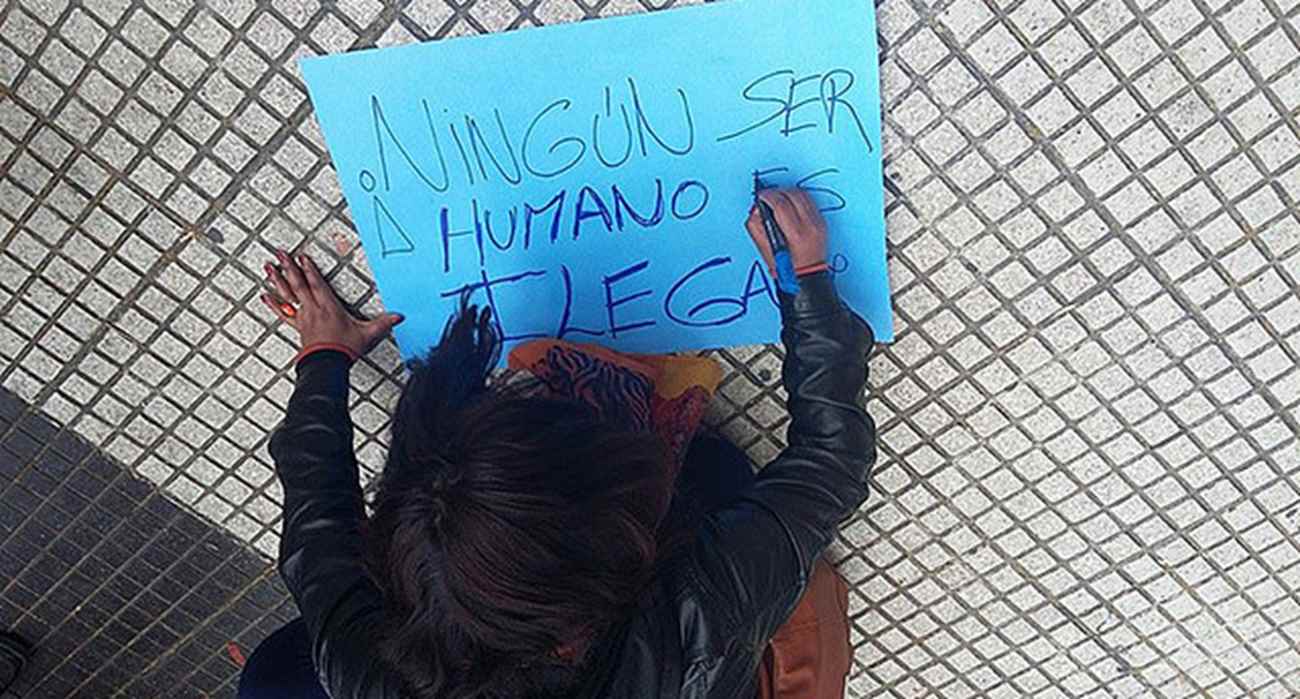 ¡NINGÚN SER
HUMANO ES
ILEGA